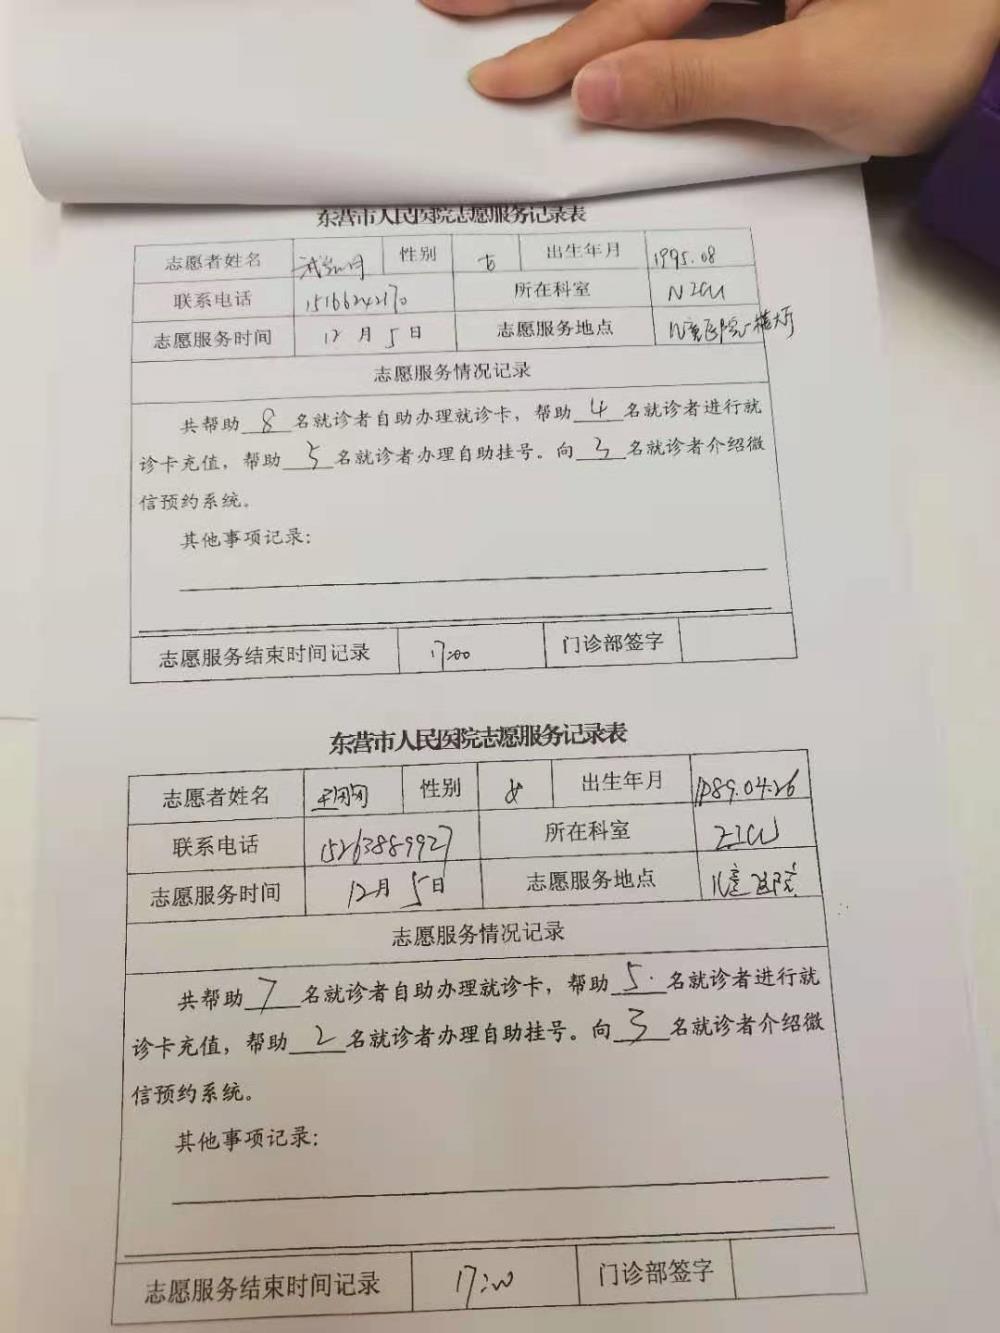 东营市人民医院志愿服务记录表
志愿者姓名 性别 女 出生年月 1995.08
联系电话 15166242170 所在科室 NICU
志愿服务时间 12月5日 志愿服务地点 儿童医院一楼大厅
志愿服务情况记录
共帮助8名就诊者自助办理就诊卡，帮助4名就诊者进行就
诊卡充值，帮助5名就诊者办理自助挂号。向3名就诊者介绍微
信预约系统。
其他事项记录：
志愿服务结束时间记录 17:00 门诊部签字
东营市人民医院志愿服务记录表
志愿者姓名 性别 女 出生年月 1989.04.26
联系电话 15263889927 所在科室
志愿服务时间 12月5日 志愿服务地点 儿童医院
志愿服务情况记录
共帮助7名就诊者自助办理就诊卡，帮助5名就诊者进行就
诊卡充值，帮助2名就诊者办理自助挂号。向3名就诊者介绍微
信预约系统。
其他事项记录：
志愿服务结束时间记录 17:00 门诊部签字